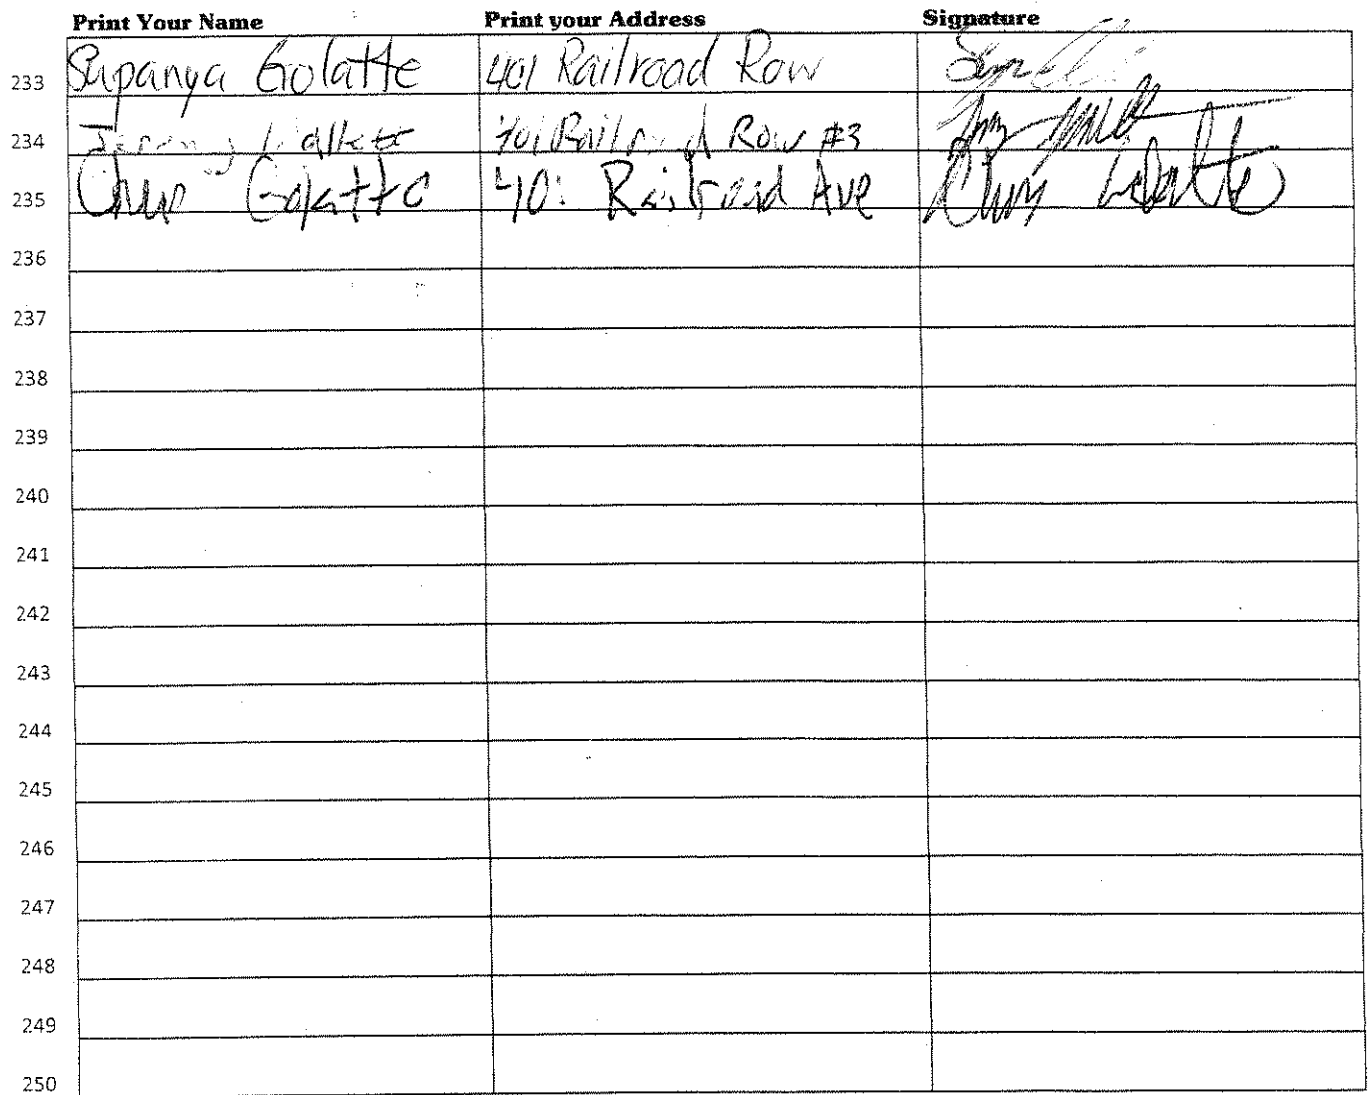 Print Your Name Print your Address Signature
233 Supanya Golatte 401 Railroad Row
234 401 Railroad Row #3
235 Golatte 40 Railroad Ave Golatte
236
237
238
239
240
241
242
243
244
245
246
247
248
249
250